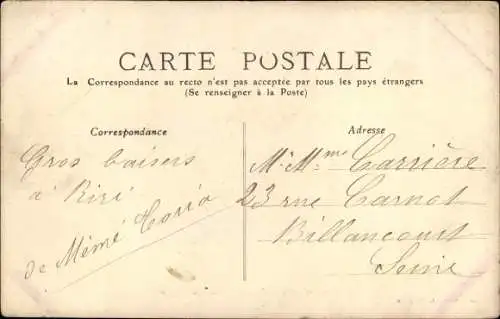 CARTE POSTALE
La Correspondance au recto n'est pas acceptée par tous les pays étrangers
(Se renseigner à la Poste)
Correspondance
Gros baisers
à Riri
de Mémé
Adresse
Mr Mme Carrière
23 rue Carnot
Billancourt
Seine